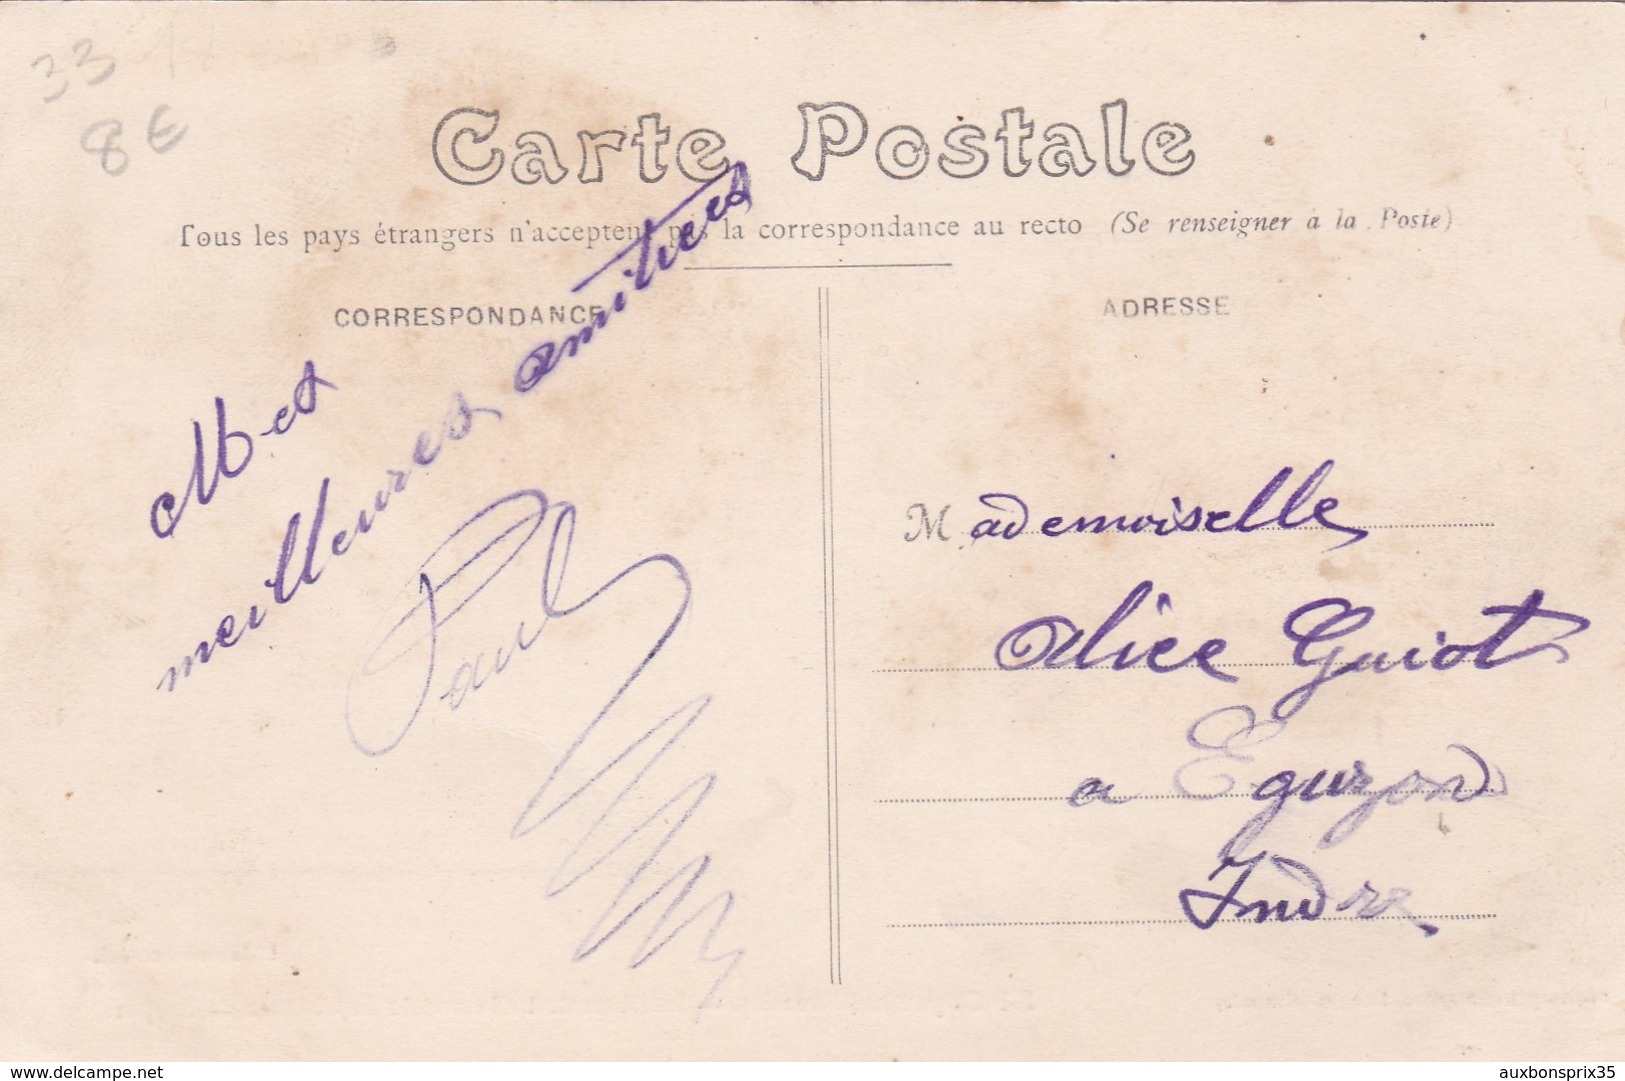 33
8€
Carte Postale
Tous les pays étrangers n'acceptent pas la correspondance au recto (Se renseigner à la Poste)
CORRESPONDANCE
Mes
meilleures amitiées
Paul
ADRESSE
Mademoiselle
Alice Guiot
a Eguzon
Indre
www.delcampe.net
auxbonsprix35